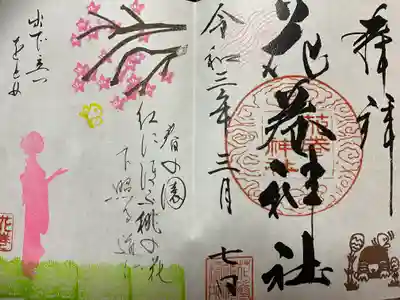 奉拝
花巻神社
令和三年三月
七日
春の園
紅にほふ桃の花
下照る道に
出で立つ
をとめ
花巻